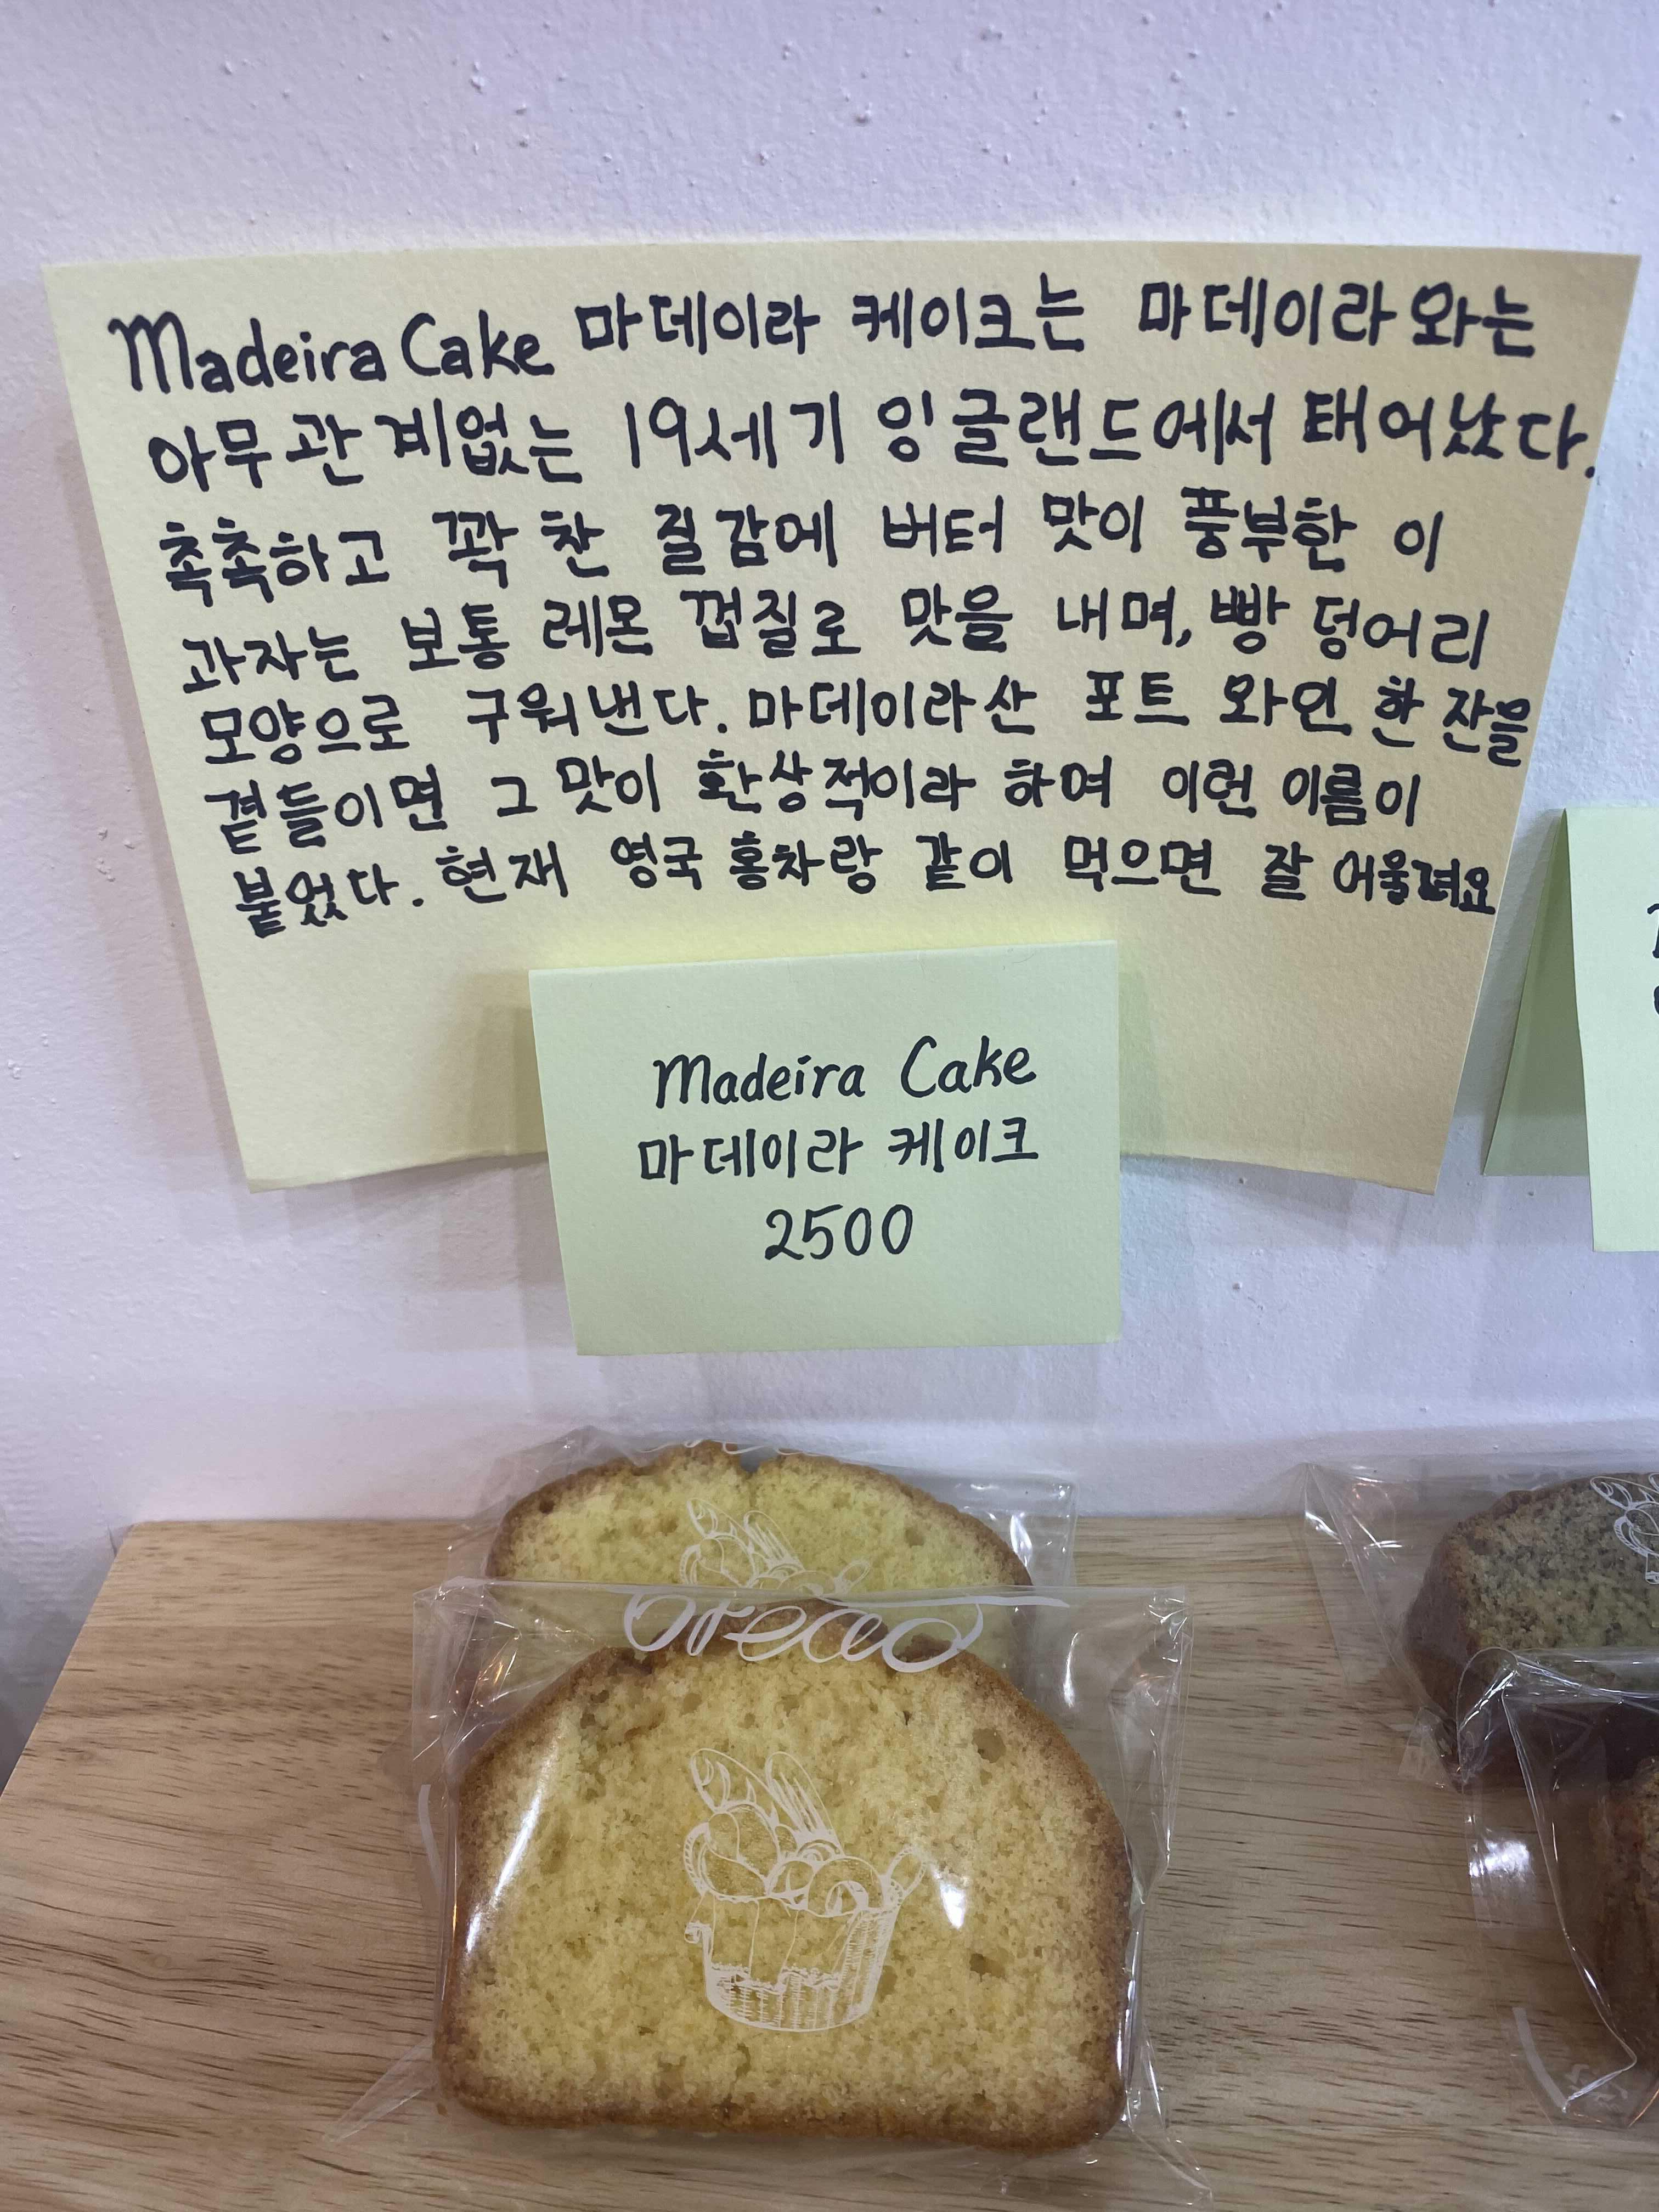 Madeira Cake 마데이라 케이크는 마데이라와는
아무관계없는 19세기 잉글랜드에서 태어났다.
촉촉하고 꽉 찬 질감에 버터 맛이 풍부한 이
과자는 보통 레몬 껍질로 맛을 내며, 빵 덩어리
모양으로 구워낸다. 마데이라산 포트 와인 한 잔을
곁들이면 그 맛이 환상적이라 하여 이런 이름이
붙었다. 현재 영국 홍차랑 같이 먹으면 잘 어울려요
Madeira Cake
마데이라 케이크
2500
bread